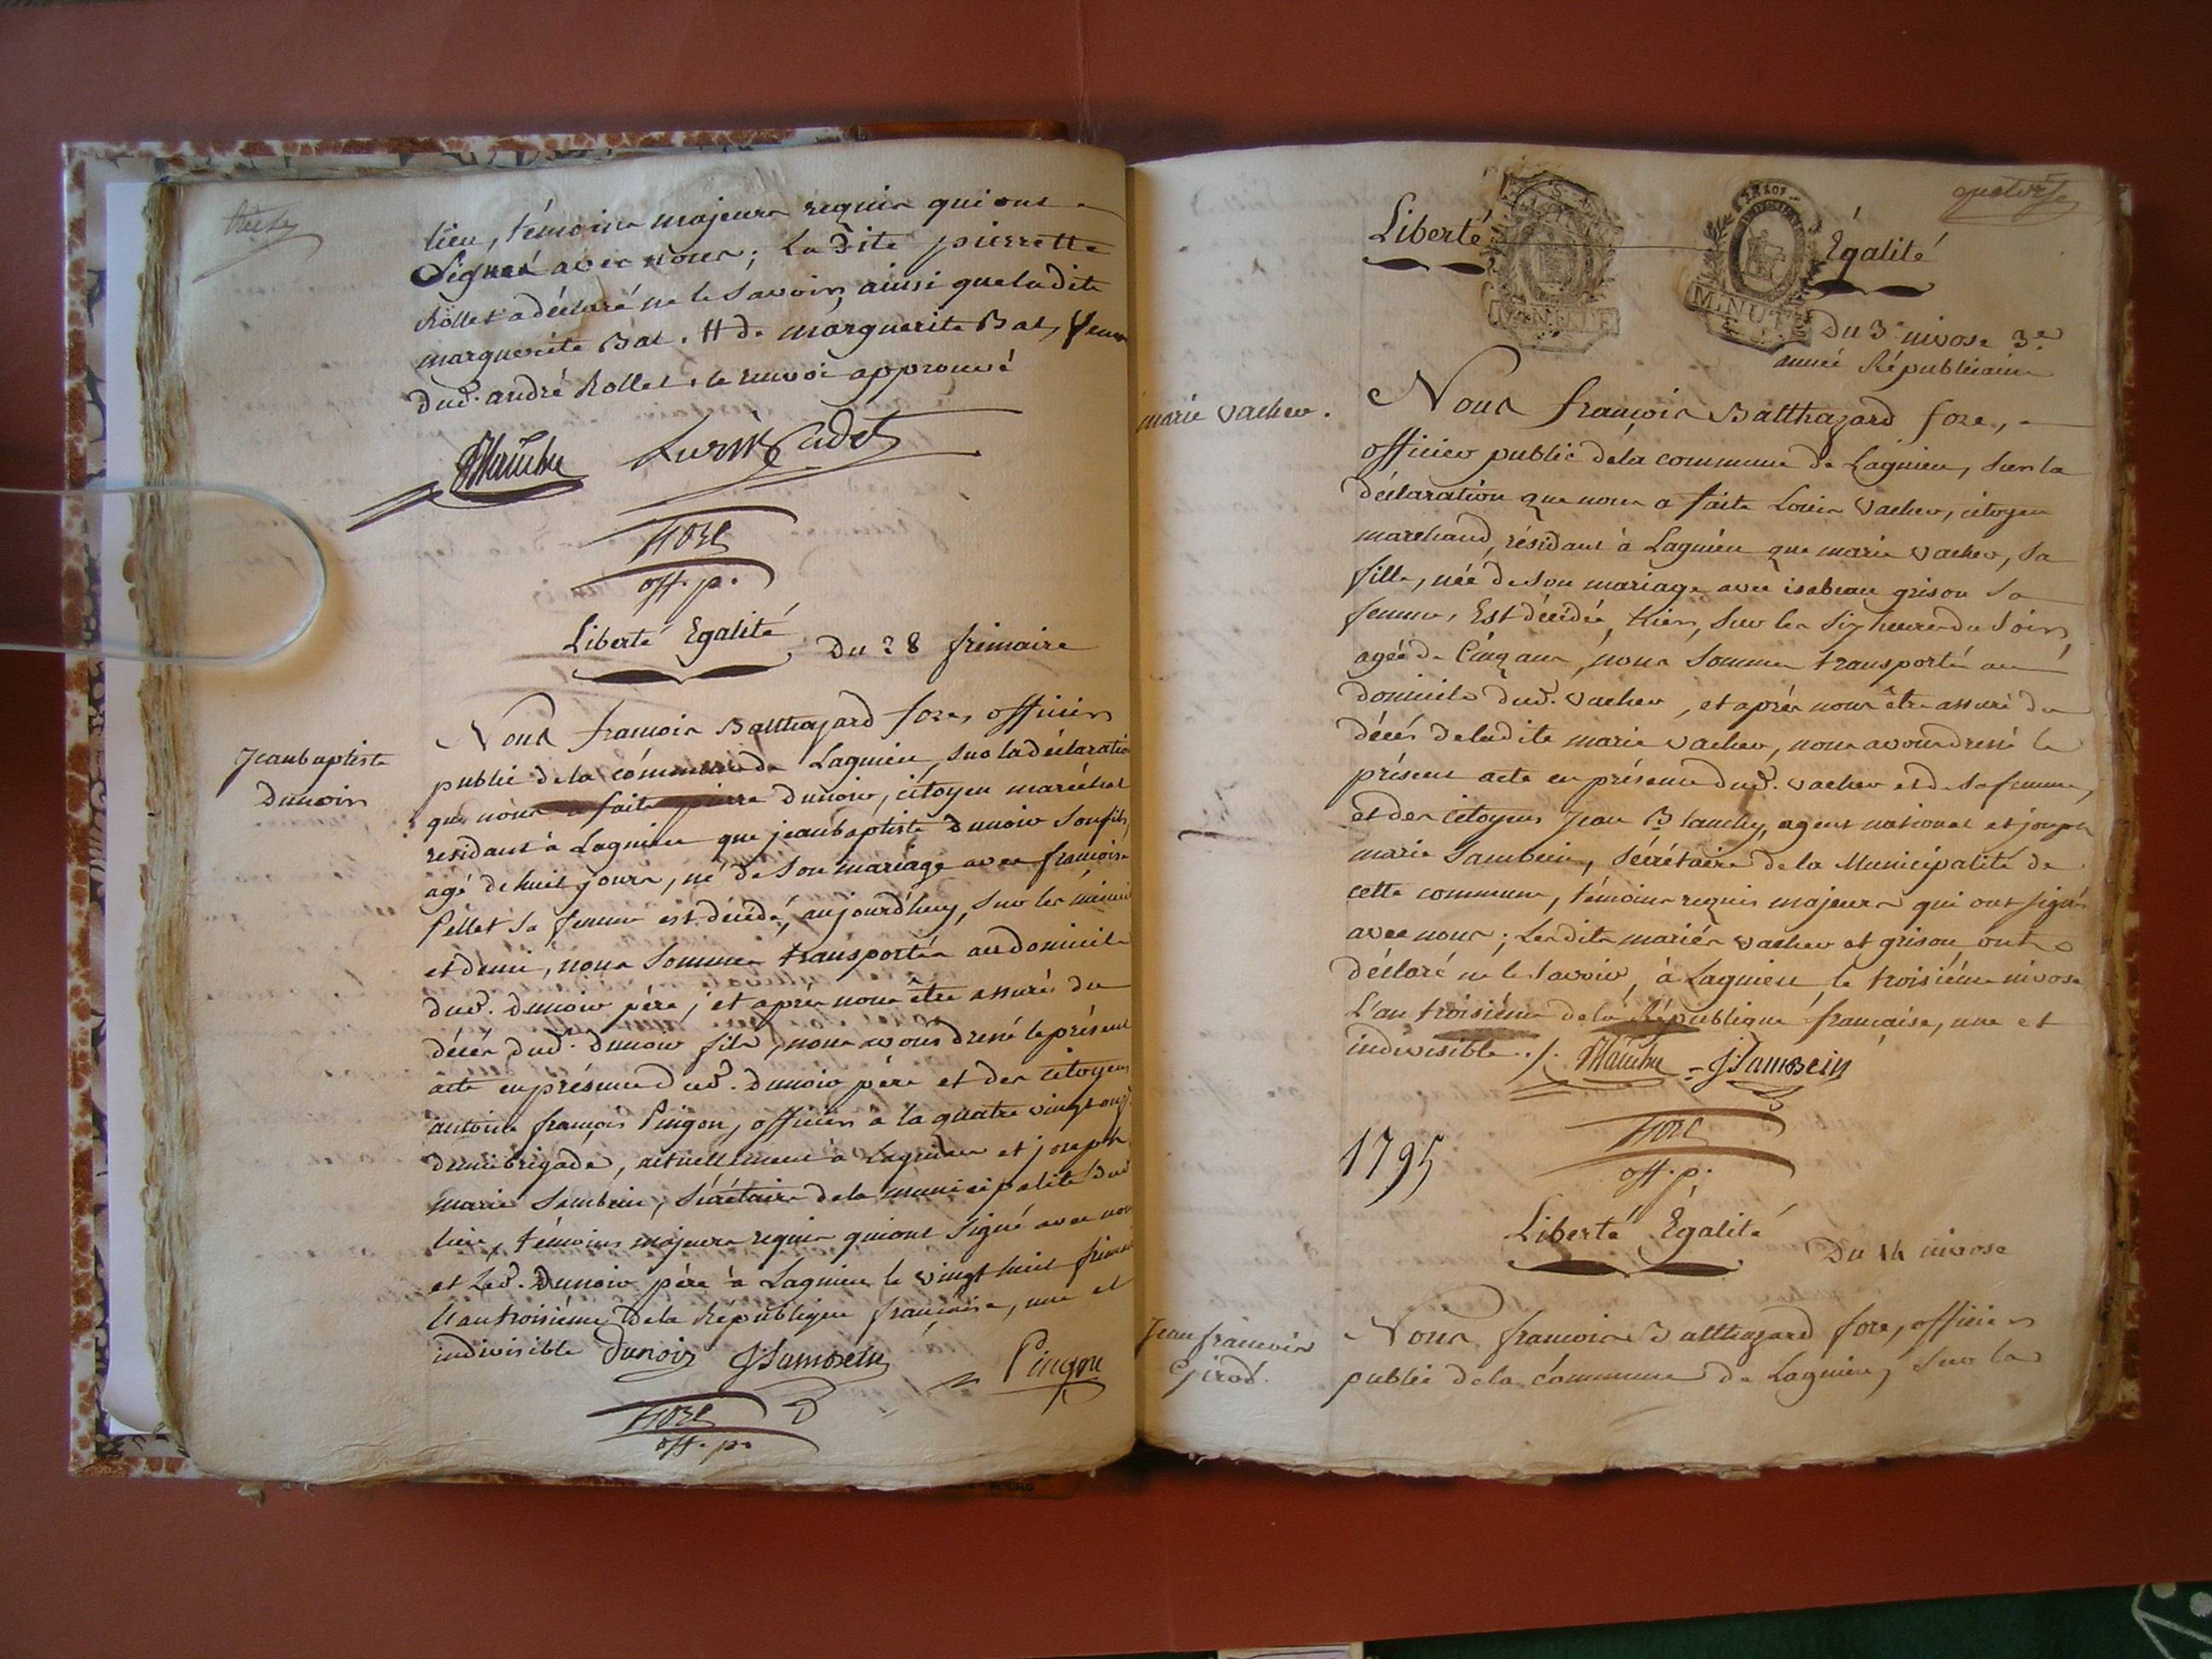 treize
lieu, témoins majeurs requis qui ont
Signé avec nous; La dite pierrette
Rollet a déclaré ne le savoir, ainsi que ladite
marguerite Bal. # de marguerite Bal, veuve
dud. andré Rollet. le renvoi approuvé
Blanchy Cadet
fore
off. p.
Liberté Egalité Du 28 frimaire
Jean baptiste
Dunoir
Nous francois Balthazard fore, officier
public de la commune de Lagnieu, sur la déclaration
que nous a faite pierre Dunoir, citoyen maréchal
residant à Lagnieu que jean baptiste Dunoir son fils,
agé de huit jours, né de son mariage avec francoise
Pellet sa femme est décédé, aujourd'huy, sur les
et demi, nous sommes transportés au domicile
dud. Dunoir père; et après nous être assuré du
décès dud. Dunoir fils, nous avons dressé le présent
acte en présence dud. Dunoir père et des citoyens
antoine françois Pingon, officier à la quatre vingt onze
demi brigade, actuellement à Lagnieu et joseph
marie Sambein, sécrétaire de la municipalité dud
lieu, témoins majeurs requis qui ont signé avec nous
et led. Dunoir père à Lagnieu le vingt huit frimaire
l'an troisième de la République française, une et
indivisible Dunoir J Sambein Pingon
fore
off. p.
quatorze
Liberté Égalité
MINUTE MINUTE
Du 3e nivose 3e
année Républicaine
marie vacher.
Nous françois Balthazard fore,
officier public de la commune de Lagnieu, sur la
déclaration que nous a faite Louis Vacher, citoyen
marchand, résidant à Lagnieu que marie vacher, sa
fille, née de son mariage avec isabeau grison sa
femme, Est décédée, hier, sur les six heures du soir,
agée de Cinq ans, nous sommes transporté au
domicile dud. vacher, et après nous être assuré du
décès de ladite marie vacher, nous avons dressé le
présent acte en présence dud. vacher et de sa femme,
et des citoyens Jean Blanchy, agent national et joseph
marie Sambein, sécrétaire de la Municipalité de
cette commune, témoins requis majeurs qui ont signé
avec nous; Lesdits mariés vacher et grison ont
déclaré ne le savoir, à Lagnieu, le troisième nivose
L'an troisième de la République française, une et
indivisible ./. Blanchy J Sambein
fore
off. p.
1795
Liberté Égalité
Du 14 nivose
Jean francois
Girod.
Nous francois Balthazard fore, officier
public de la commune de Lagnieu, sur la